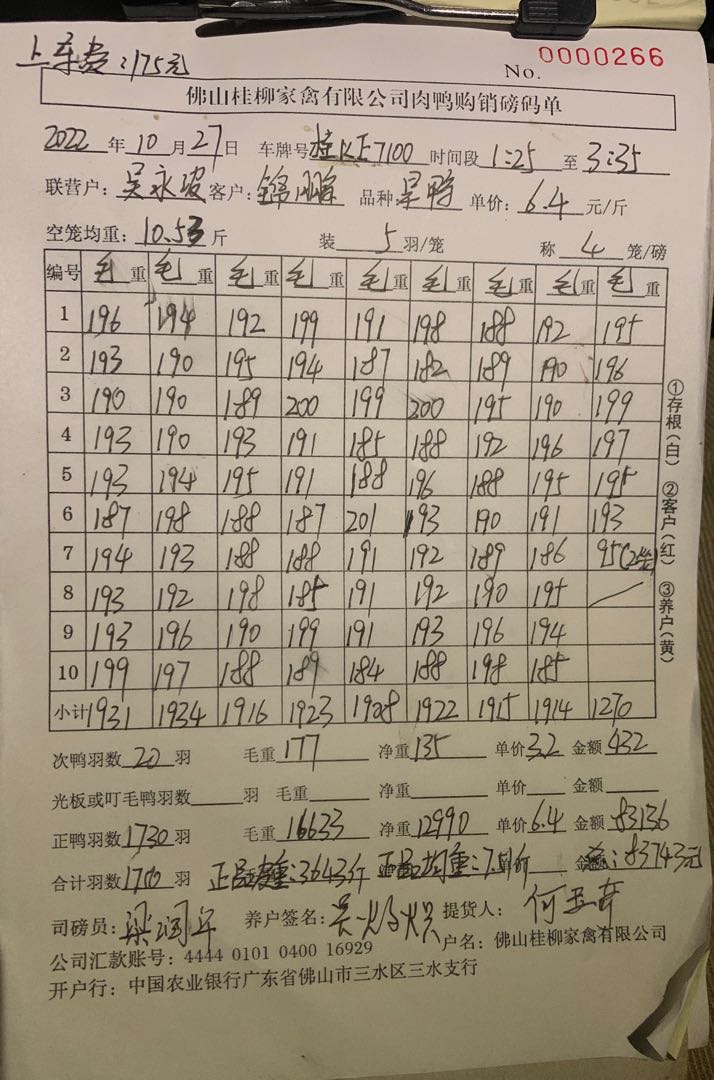 上车费:175元
No. 0000266
佛山桂柳家禽有限公司肉鸭购销磅码单
2022 年 10 月 27 日 车牌号 桂KE7100 时间段 1:25 至 3:35
联营户: 吴永波 客户: 锦 品种 呈鸭 单价: 6.4 元/斤
空笼均重: 10.53 斤 装 5 羽/笼 称 4 笼/磅
编号 毛重 毛重 毛重 毛重 毛重 毛重 毛重 毛重 毛重
1 196 194 192 199 191 198 188 192 195
2 193 190 195 194 187 182 189 190 196
3 190 190 189 200 199 200 195 190 199
4 193 190 193 191 185 188 192 196 197
5 193 194 195 191 188 196 188 195 195
6 187 198 188 187 201 193 190 191 193
7 194 193 188 188 191 192 189 186 95(2笼)
8 193 192 198 185 191 192 190 195
9 193 196 190 199 191 193 196 194
10 199 197 188 189 184 188 198 185
小计 1931 1934 1916 1923 1908 1922 1915 1914 1270
次鸭羽数 20 羽 毛重 177 净重 135 单价 3.2 金额 432
光板或叮毛鸭羽数 羽 毛重 净重 单价 金额
正鸭羽数 1730 羽 毛重 16633 净重 12990 单价 6.4 金额 83136
合计羽数 1750 羽 正品 重:3643斤 正品均重:7.51 价 金额:83743元
司磅员: 梁润年 养户签名: 提货人:
公司汇款账号: 4444 0101 0400 16929 户名: 佛山桂柳家禽有限公司
开户行: 中国农业银行广东省佛山市三水区三水支行
①存根(白) ②客户(红) ③养户(黄)